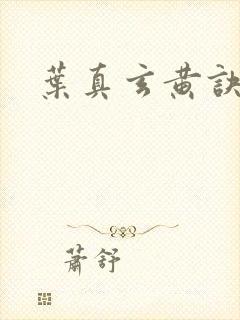 葉真玄黄訣
蕭舒